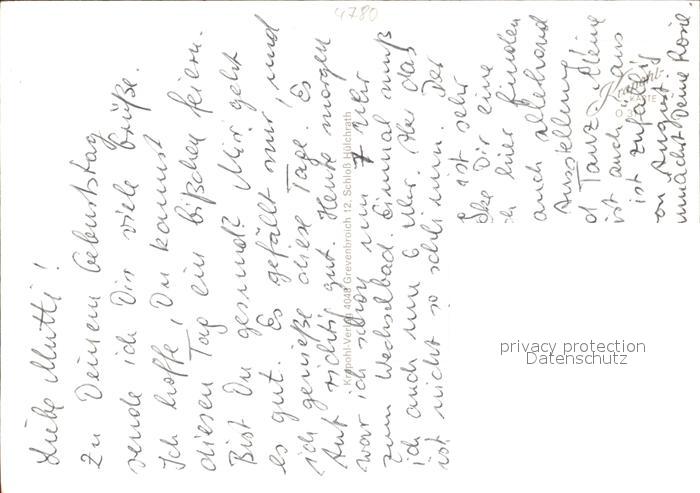 Liebe Mutti!
Zu Deinem Geburtstag
sende ich Dir viele Grüße.
Ich hoffe, Du kannst
diesen Tag ein bißchen feiern.
Bist Du gesund? Mir geht
es gut. Es gefällt mir, und
ich genieße diese Tage. Es
tut richtig gut. Heute morgen
war ich schon um 7 Uhr
zum Wechselbad. Einmal muß
ich auch um 6 Uhr. Aber das
ist nicht so schlimm. Der
ist sehr
Dir eine
ch hier finden
auch allehand
Ausstellung
d Tanz. Meine
ist auch aus
ist zufällig
August
Deine Rosie.
4780
Krapohl-Verlag 4048 Grevenbroich 12, Schloß Hülchrath
Krapohl-
KARTE
privacy protection
Datenschutz